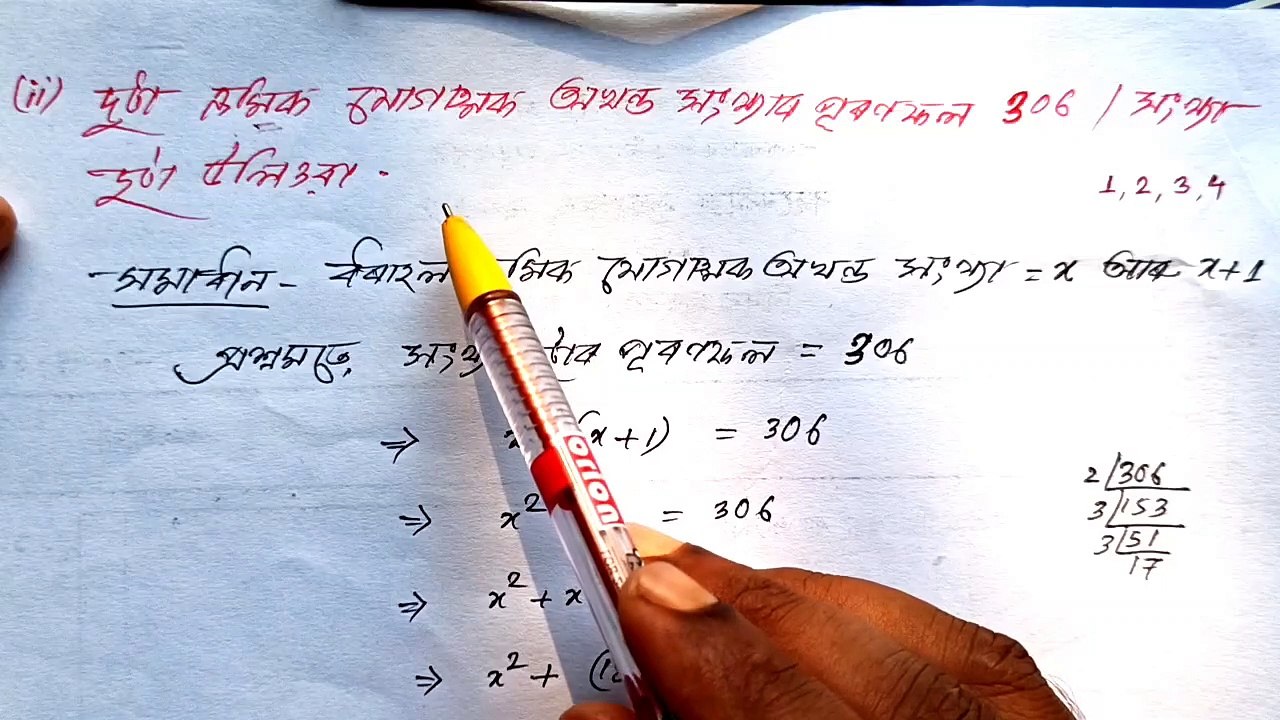 (ii) দুটা ক্ৰমিক যোগাত্মক অখণ্ড সংখ্যাৰ পূৰণফল 306 | সংখ্যা
দুটা উলিওৱা .
1, 2, 3, 4
সমাধান - ধৰাহল মিক যোগাত্মক অখণ্ড সংখ্যা = x আৰু x+1
প্ৰশ্নমতে, টাৰ পূৰণফল = 306
⇒ (x+1) = 306
⇒ x² = 306
⇒ x² + x
⇒ x² +
2 306
3 153
3 51
17
orion